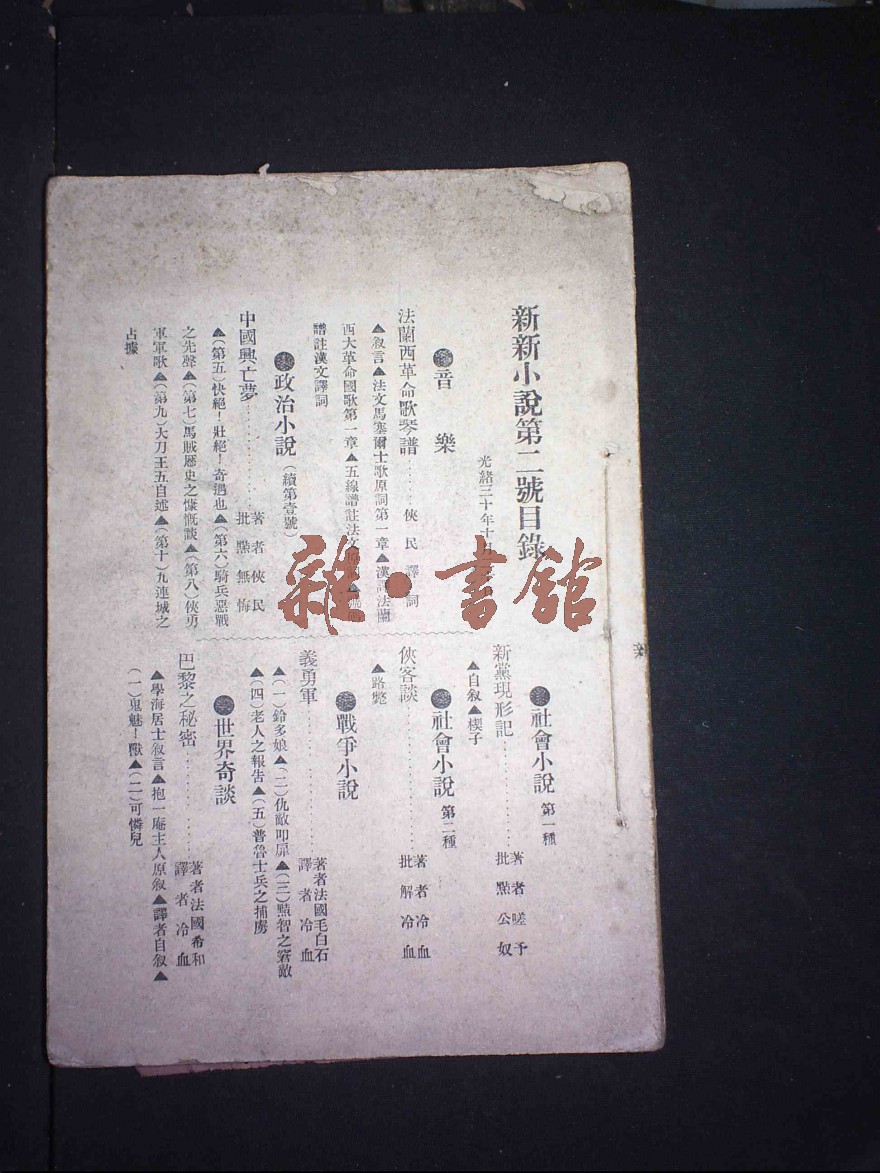 新新小說第二號目錄
光緒三十年十
音樂
法蘭西革命歌琴譜……俠民譯詞
▲敘言▲法文馬塞爾士歌原詞第一章▲漢 法蘭
西大革命國歌第一章▲五線譜註法文
譜註漢文譯詞
政治小說（續第壹號）
中國興亡夢……著者俠民
批點無悔
▲（第五）快絕！壯絕！奇遇也▲（第六）騎兵惡戰
之先聲▲（第七）馬賊歷史之慷慨談▲（第八）俠勇
軍軍歌▲（第九）大刀王五自述▲（第十）九連城之
占據
社會小說 第一種
新黨現形記……著者嗟予
批點公奴
▲自敘▲楔子
社會小說 第二種
俠客談……著者冷血
批解冷血
▲路斃
戰爭小說
義勇軍……著者法國毛白石
譯者冷血
▲（一）鈴多娘▲（二）仇敵叩扉▲（三）點智之窘敵
▲（四）老人之報告▲（五）普魯士兵之捕虜
世界奇談
巴黎之秘密……著者法國希和
譯者冷血
▲學海居士敘言▲抱一庵主人原敘▲譯者自敘▲
（一）鬼魅！獸▲（二）可憐兒
雜·書館